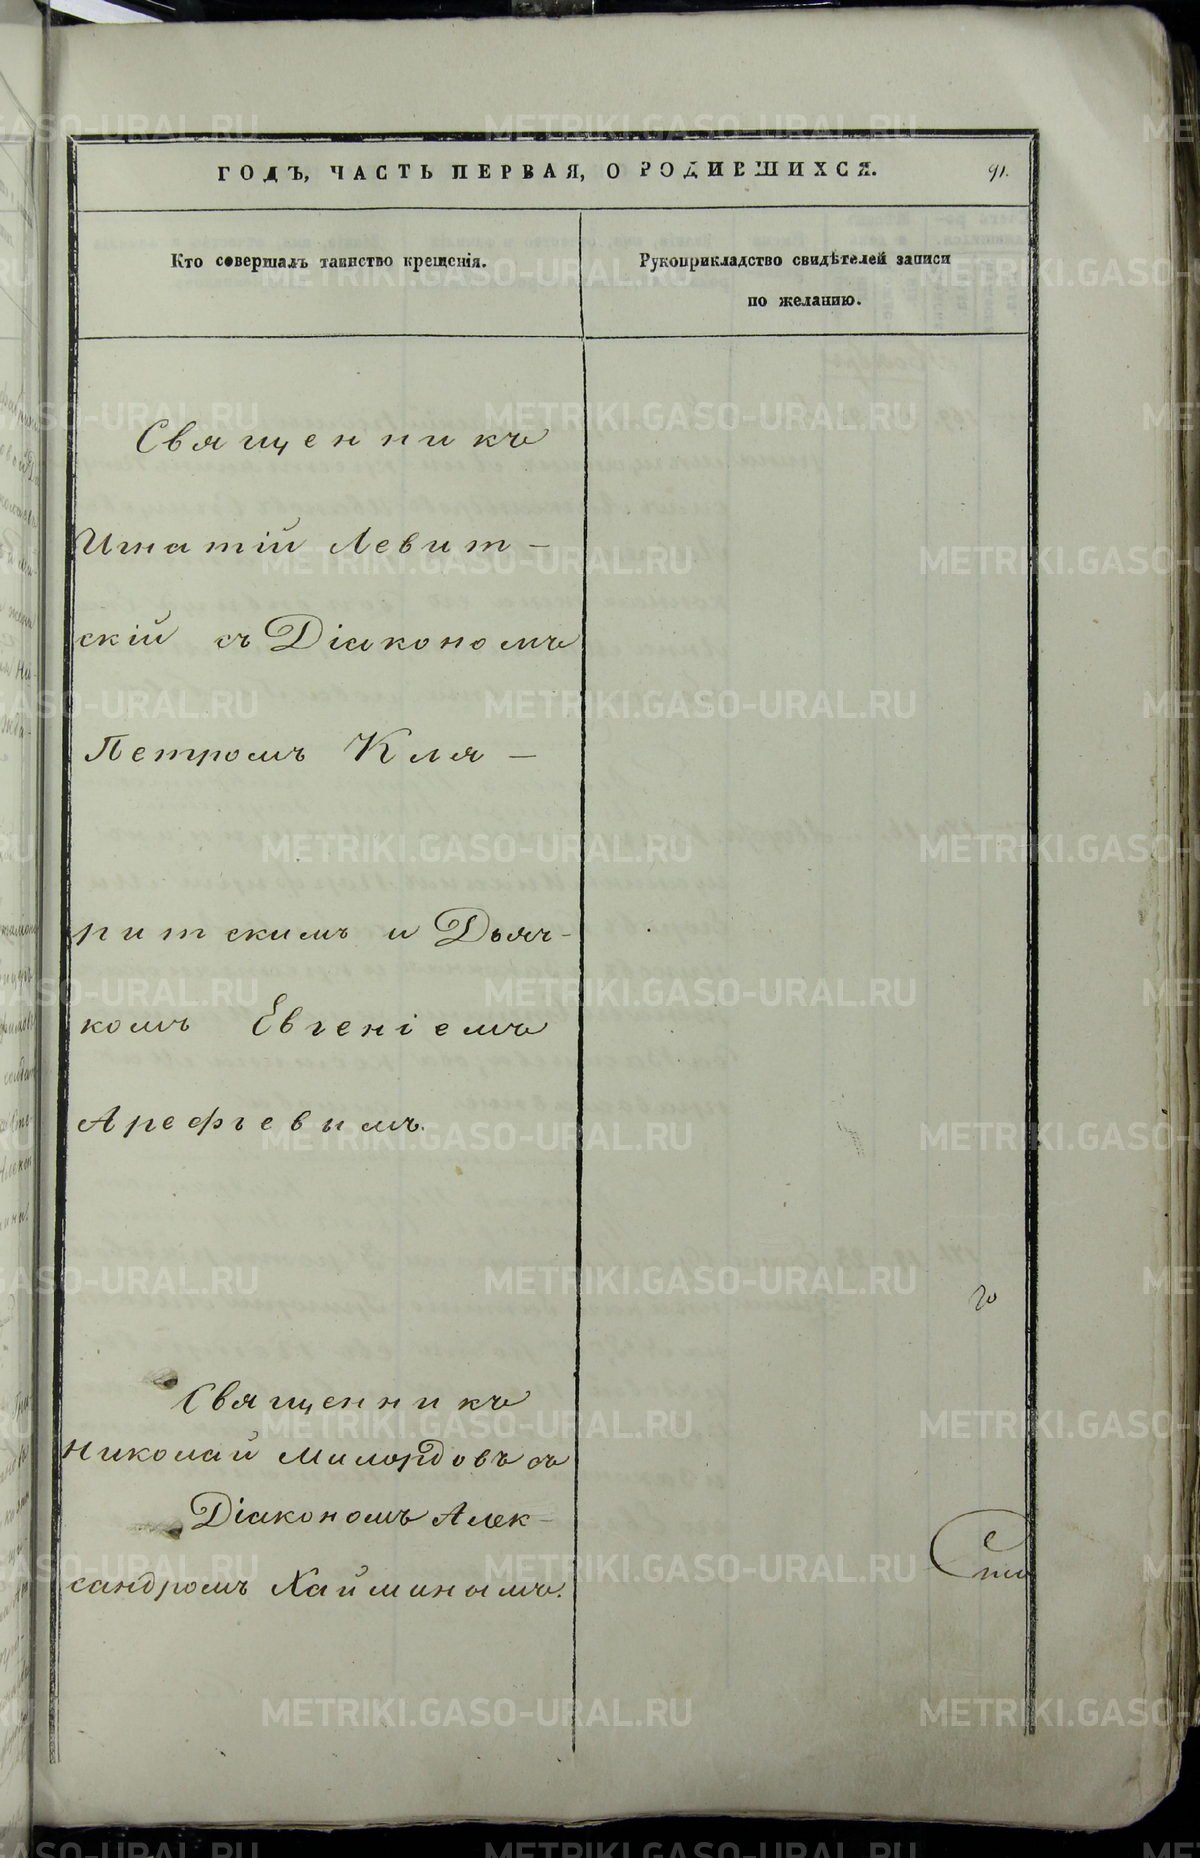 ГОДЪ, ЧАСТЬ ПЕРВАЯ, О РОДИВШИХСЯ.
91.
Кто совершалъ таинство крещенія.
Рукоприкладство свидѣтелей записи
по желанію.
Священникъ
Игнатій Левит-
скій съ Діакономъ
Петромъ Кля-
ритскимъ и Дьяч-
комъ Евгеніемъ
Арефьевымъ.
Священникъ
Николай Милордовъ съ
Діакономъ Алек-
сандромъ Хайминымъ.
METRIKI.GASO-URAL.RU